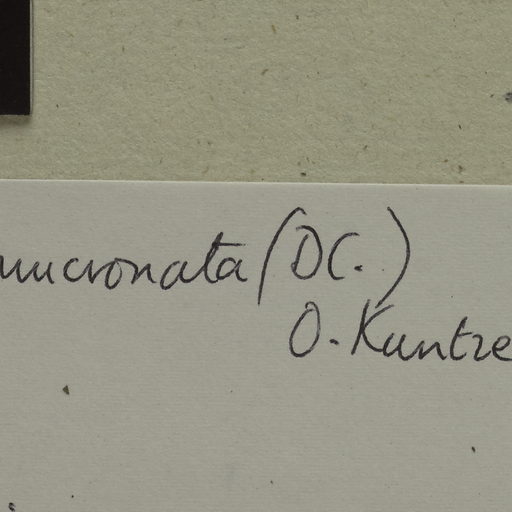 mucronata (DC.)
O. Kuntze